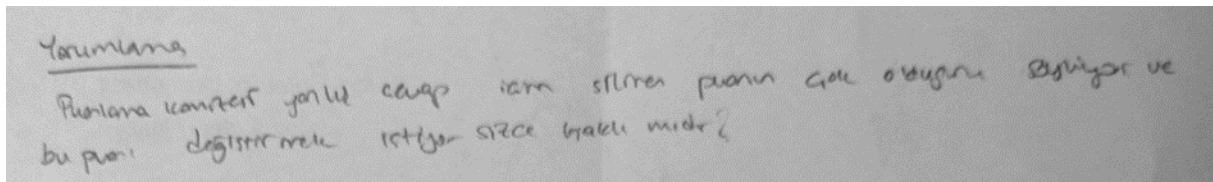 Yorumlama
Puanlama komitesi yanlış cevap için silinen puanın çok olduğunu söylüyor ve
bu puanı değiştirmek istiyor sizce haklı mıdır?